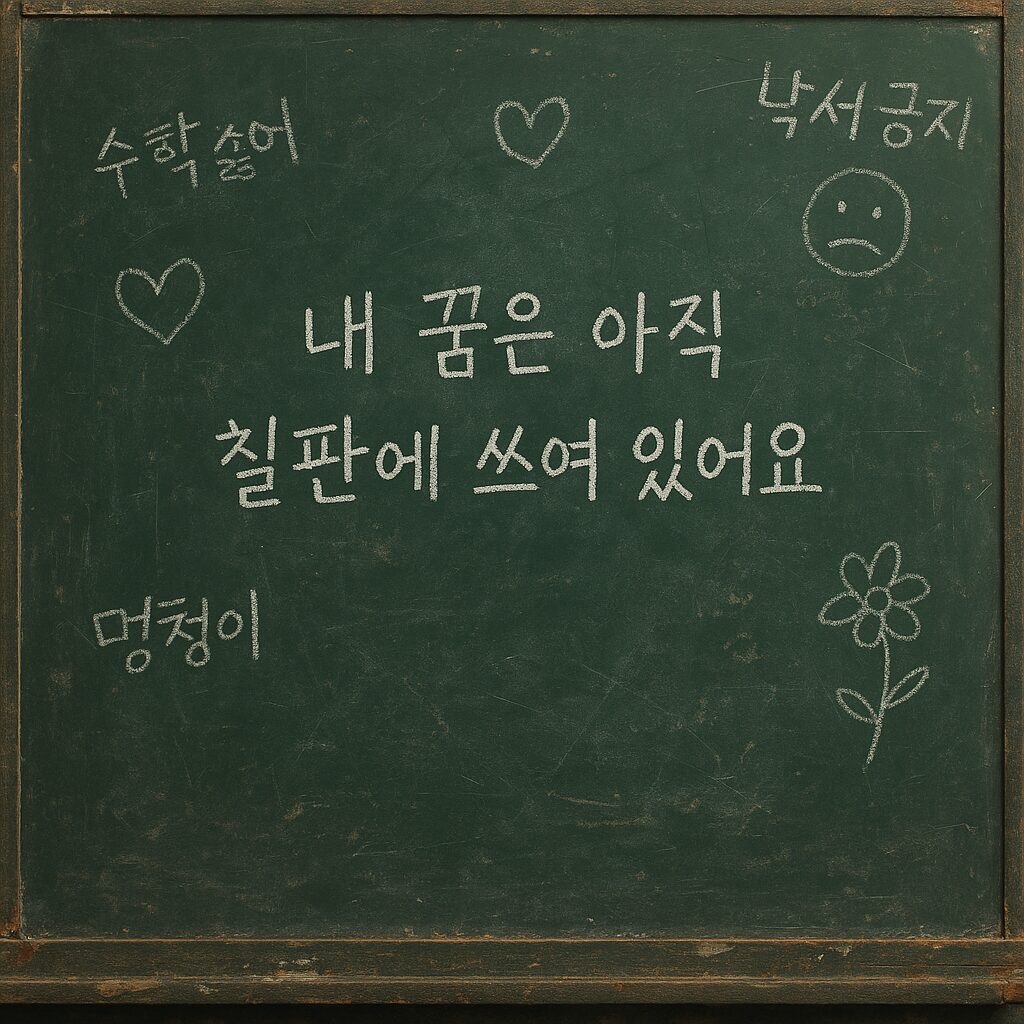 수학
낙서 금지
내 꿈은 아직
칠판에 쓰여 있어요
멍청이